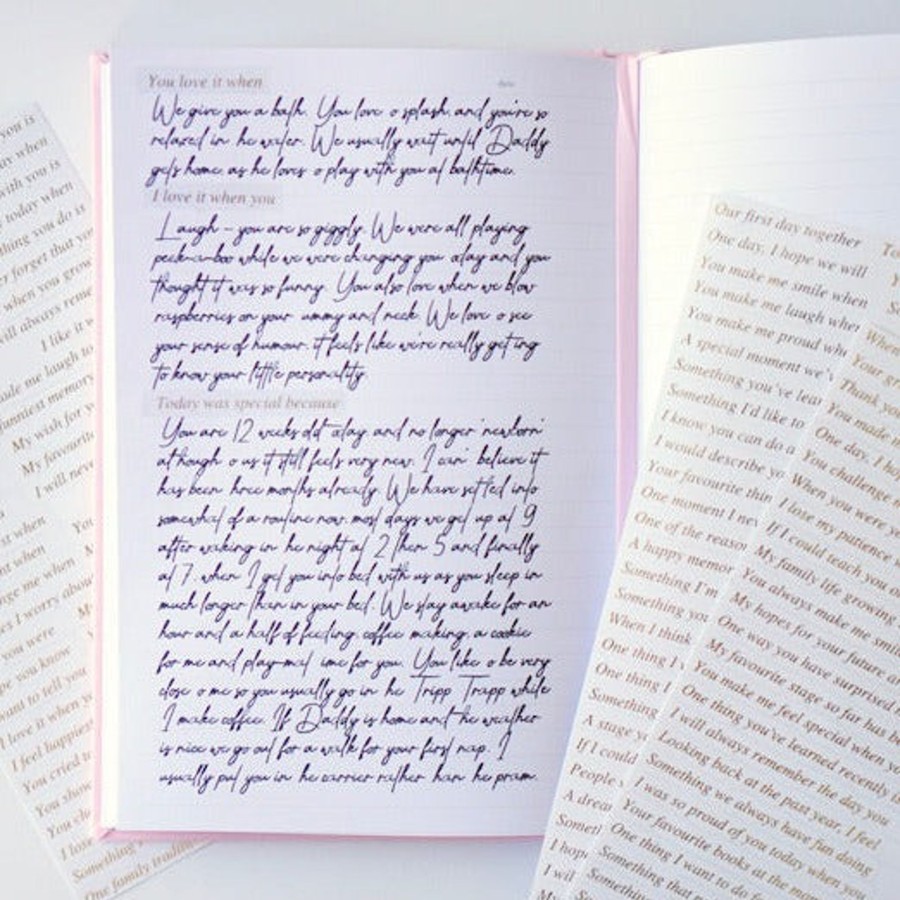 You love it when
Date
We give you a bath. You love o splash, and you're so
relaxed in he water. We usually wait until Daddy
gets home, as he loves o play with you at bathtime.
I love it when you
Laugh - you are so giggly. We were all playing
peek-a-boo while we were changing you oday and you
thought it was so funny. You also love when we blow
raspberries on your ummy and neck. We love o see
your sense of humour, it feels like we're really getting
to know your little personality.
Today was special because
You are 12 weeks old oday and no longer 'newborn'
although o us it still feels very new. I can' believe it
has been hree months already. We have settled into
somewhat of a routine now, most days we get up at 9
after waking in he night at 2 then 5 and finally
at 7, when I get you into bed with us as you sleep in
much longer than in your bed. We stay awake for an
hour and a half of feeding, coffee making, a cookie
for me and play-mat ime for you. You like o be very
close o me so you usually go in he Tripp Trapp while
I make coffee. If Daddy is home and the weather
is nice we go out for a walk for your first nap. I
usually put you in he carrier rather han he pram.
you is
day when
with you is
today when
thing you do is
er forget that you
when you grow
will always reme
I like it w
made me laugh to
funniest memory
My wish for y
My favourite
I will neve
I love it when yo
I feel happiest
You cried to
You show
You sh
I love
Something
One family tradition
Our first day together
One day, I hope we will
You make me smile when
You make me laugh when
You make me proud wh
A special moment we'v
Something you've lear
Something I'd like to
I know you can do a
I would describe yo
Your favourite thin
One moment I nev
One of the reason
A happy memor
Something I'm
Something you
When I think
One thing I v
One thing I
Something
A stage y
If I could
People
A drea
Someth
I hope
I wil
My
When
Your gr
Thank you
You made m
One day, I ho
You challenge m
When you were y
I love my patience w
If I could teach you o
My family life growing
You always make me smile
My hopes for your future a
One way you have surprised
My favourite stage so far has b
You make me feel special when y
One thing you've learned recently i
I will always remember the day you
Looking back at the past year, I feel
Something we always have fun doing
I was so proud of you today when you
Your favourite books at the mom
One thing I want to do fo
Something that m
Something